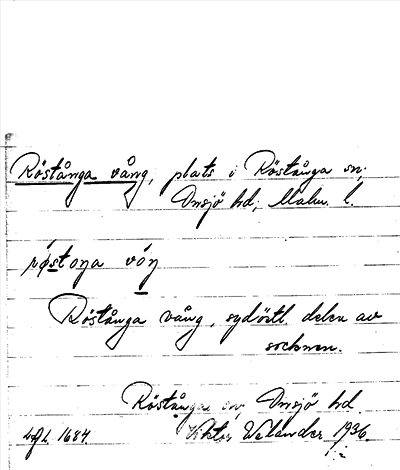 Röstånga vång, plats i Röstånga sn;
Onsjö hd, Malm. l.
røstoŋa vóŋ
Röstånga vång, sydöstl. delen av
socknen.
Röstånga sn, Onsjö hd.
1684. Viktor Welander 1936.